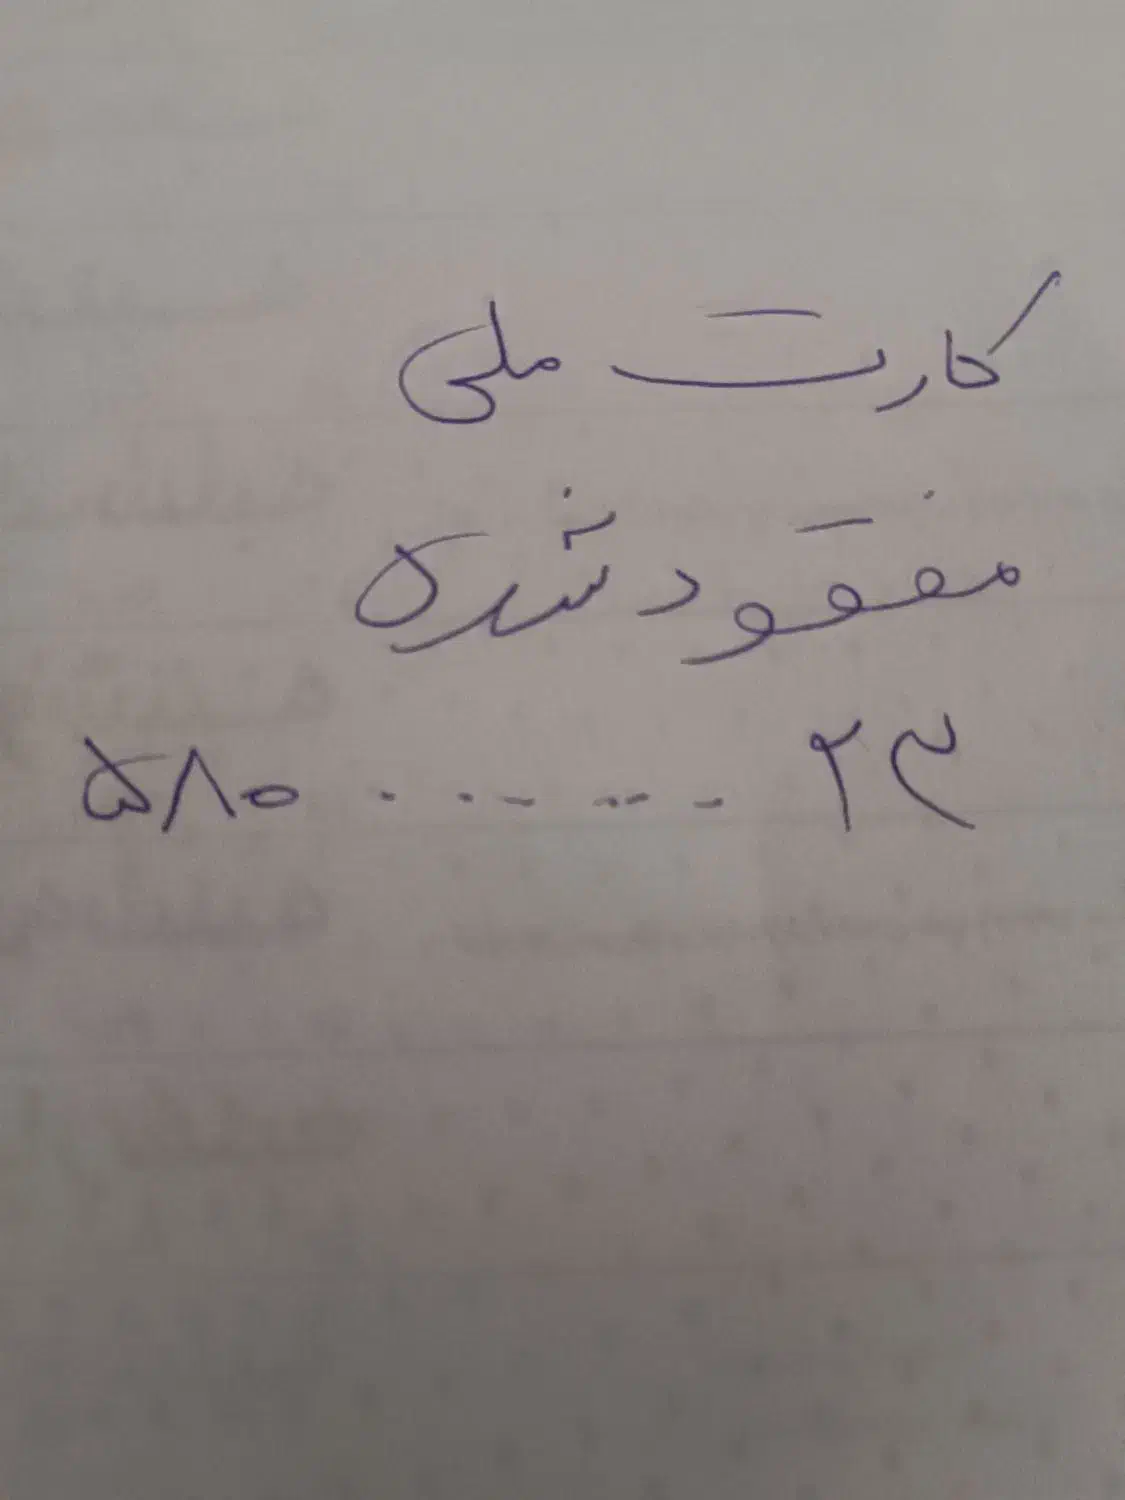 کارت ملی
مفقود شده
۵۸۰.......۲۳